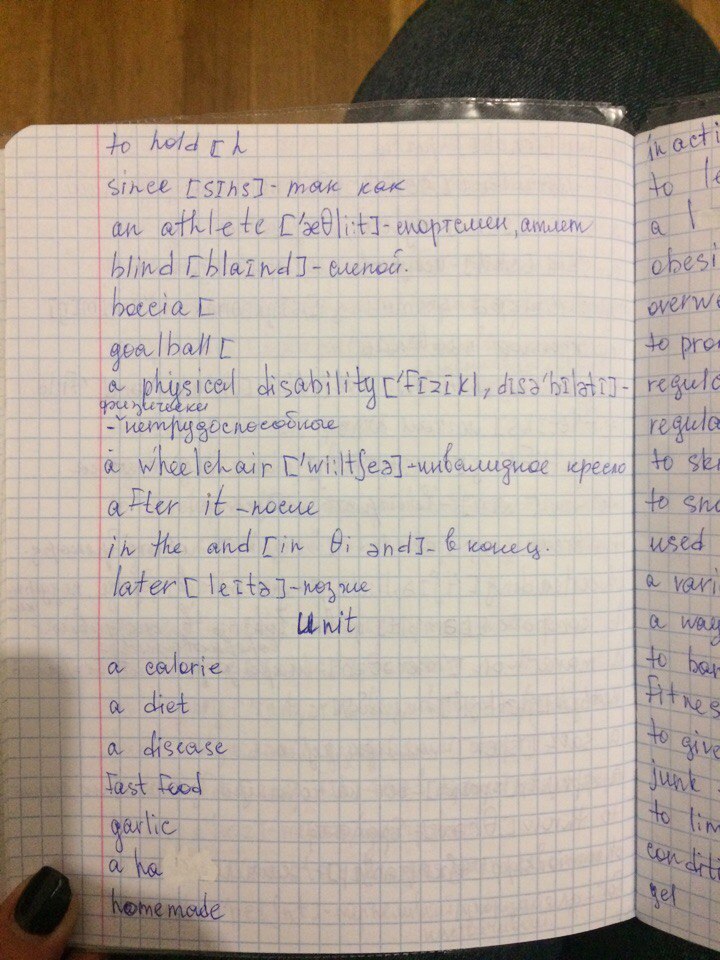 to hold [h
since [sɪns] - так как
an athlete ['æθli:t] - спортсмен, атлет
blind [blaɪnd] - слепой.
boccia [
goalball [
a physical disability ['fɪzɪkl, dɪsə'bɪlətɪ] -
физически
- нетрудоспособные
a wheelchair ['wi:ltʃeə] - инвалидное кресло
after it - после
in the and [in θi ənd] - в конец.
later [leɪtə] - позже
Unit
a calorie
a diet
a disease
fast food
garlic
a ha
homemade
inacti
to le
a l
obesi
overwe
to pro
regula
regula
to ski
to sn
used
a vari
a way
to ban
fitnes
to give
junk
to lim
conditi
gel